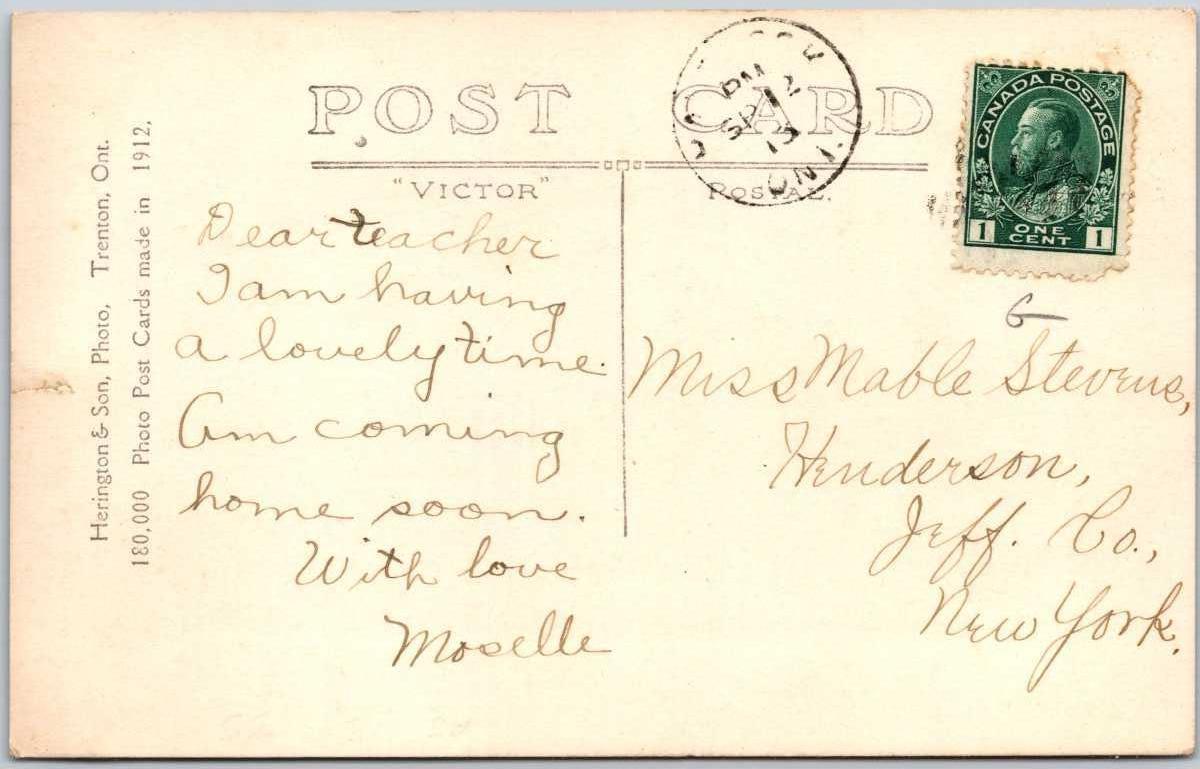 POST CARD
"VICTOR" POSTAL.
PM
SP 12
13
ONT.
CANADA POSTAGE
1 ONE CENT 1
Herington & Son, Photo, Trenton, Ont.
180,000 Photo Post Cards made in 1912.
Dear teacher
I am having
a lovely time.
Am coming
home soon.
With love
Moselle
Miss Mable Stevens,
Henderson,
Jeff. Co.,
New York.